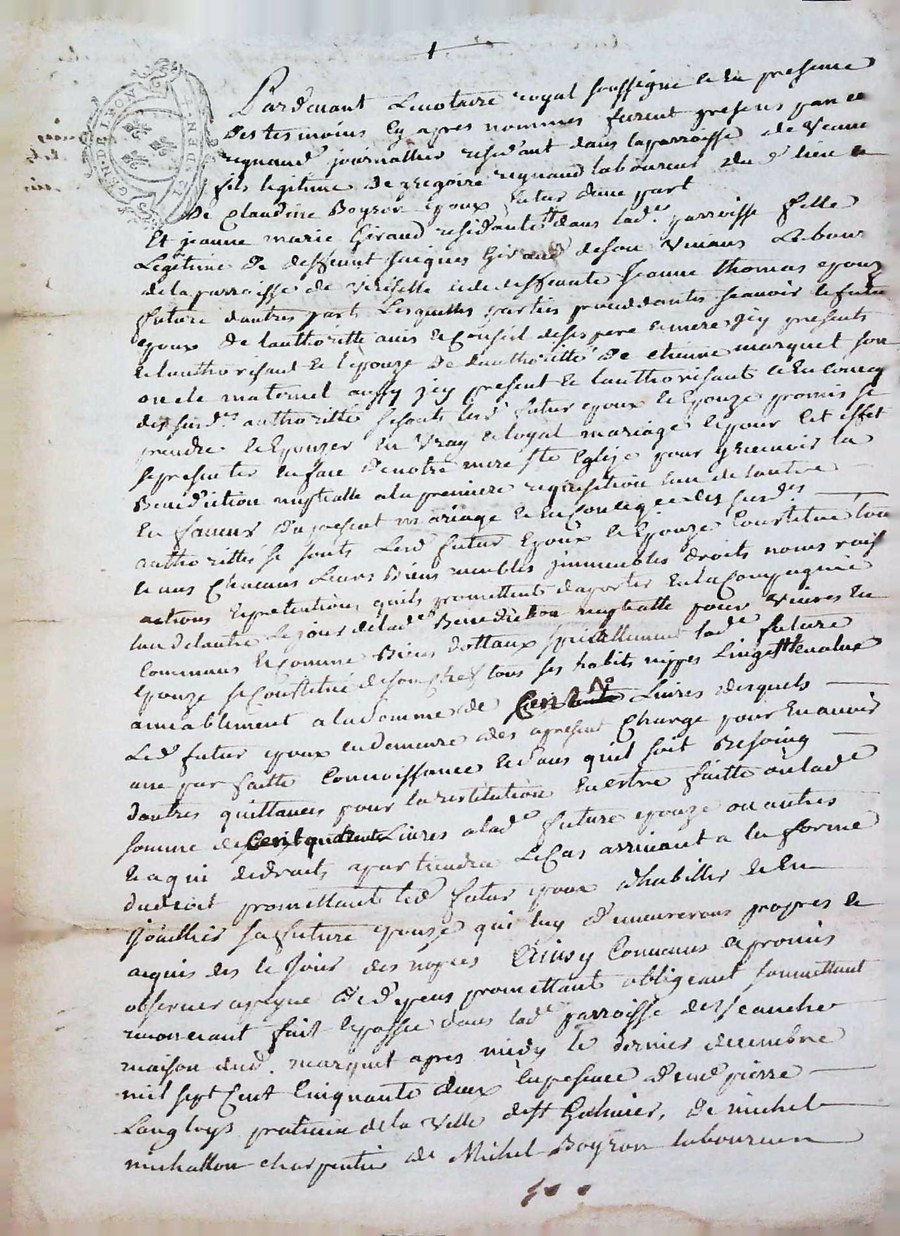 GEN DE LYON
Pardevant Le notaire royal soussigné et en presence
des tesmoins cy apres nommés furent presens
regnaud journallier residant dans la parroisse de Veauche
fils legitime de gregoire regnaud laboureur du d lieu et
de Claudine Boyron epoux futur d'une part
Et jeanne marie Giraud residante dans lad parroisse fille
Legitime de deffeunt jacques Giraud de son vivant Labour
de la parroisse de et de deffeunte jeanne thomas epouze
future d'autre part Lesquelles parties proceddantes scavoir le futur
epoux de l'authoritté avis et Conseil de ses pere et mere jcy presents
et l'authorisant et l'epouze de l'authoritté de etienne marquet son
oncle maternel aussy jcy present et l'authorisant et en
des susd authoritté se sonts lesd futur epoux et epouze promis se
prendre et Epouzer en vray et loyal mariage et pour cet effet
se presenter en face de notre mere ste Eglise pour y recevoir la
Benediction nuptialle a la premiere requisition l'un de l'autre
En faveur du present mariage et En Consequence des susdes
authorittés se sonts Lesd futur Epoux et Epouze Constitué tous
et uns Chacuns Leurs Biens meubles jmmeubles droits noms raisons
actions et pretentions qu'ils promettent d'aporter en la Compagnie
l'un de l'autre Le jour de lad Benediction nuptialle pour vivres en
Commun et comme Biens dottaux speciallement lad future
Epouze se Constitue de son Chef tous ses habits nippes Linges
amiablement a la somme de Cent Livres desquels
Led futur epoux en demeure des apresent Chargé pour En avoir
une parfaitte Connoissance et sans qu'il soit Besoing
d'autres quittances pour la restitution En estre faitte de lad
somme de Cent quarente Livres a lad future epouze ou autres
et a qui de droits apartiendra Le Cas arrivant a la forme
du droit promettant led futur epoux d'habiller et En
joailler sa future epouze qui luy demeureronts propres et
acquis des le jour des nopces Ainsy Convenus et promis
observer a peyne de depens promettant obligeant soumettant
renoncant fait et passé dans lad parroisse de Veauche
maison dud. marquet apres midy le dernier decembre
mil sept Cent Cinquante deux En presence de pierre
Langloys praticien de la Ville de st Galmier, de michel
michallon charpentier de Michel Boyron laboureur